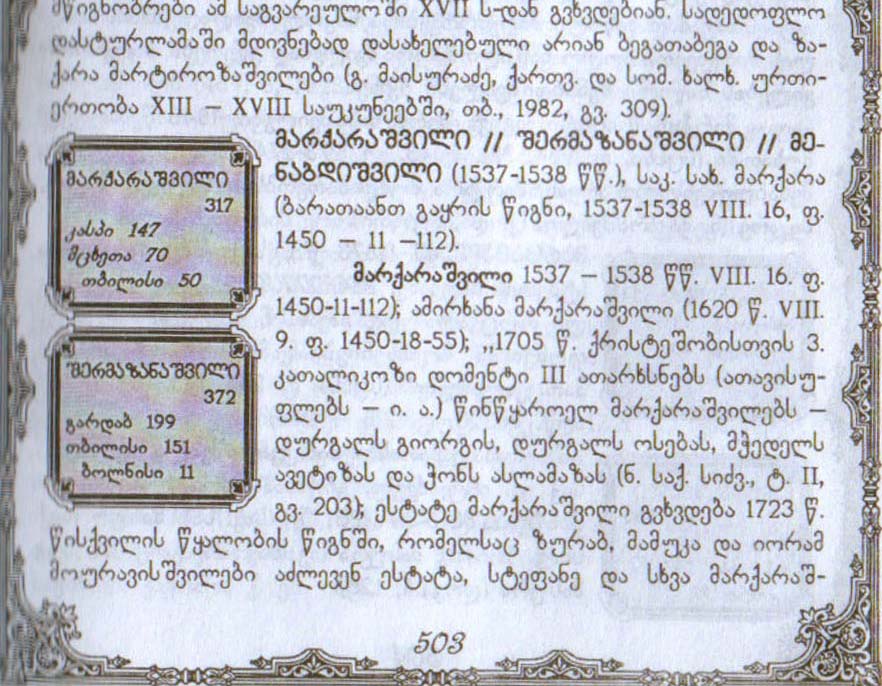 მწიგნობრები ამ საგვარეულოში XVII ს-დან გვხვდებიან. სადედოფლო
დასტურლამაში მდივნებად დასახელებული არიან ბეგათაბეგა და ზა-
ქარა მარტიროზაშვილები (გ. მაისურაძე, ქართვ. და სომ. ხალხ. ურთი-
ერთობა XIII – XVIII საუკუნეებში, თბ., 1982, გვ. 309).
მარქარაშვილი // შერმაზანაშვილი // მე-
ნაბდიშვილი (1537-1538 წწ.), საკ. სახ. მარქარა
(ბარათაანთ გაყრის წიგნი, 1537-1538 VIII. 16, ფ.
1450 – 11 –112).
მარქარაშვილი 1537 – 1538 წწ. VIII. 16. ფ.
1450-11-112); ამირხანა მარქარაშვილი (1620 წ. VIII.
9. ფ. 1450-18-55); „1705 წ. ქრისტეშობისთვის 3.
კათალიკოზი დომენტი III ათარხსნებს (ათავისუ-
ფლებს – ი. ა.) წინწყაროელ მარქარაშვილებს –
დურგალს გიორგის, დურგალს ოსებას, მჭედელს
ავეტიზას და ჰონს ასლამაზას (ნ. საქ. სიძვ., ტ. II,
გვ. 203); ესტატე მარქარაშვილი გვხვდება 1723 წ.
წისქვილის წყალობის წიგნში, რომელსაც ზურაბ, მამუკა და იორამ
მოურავისშვილები აძლევენ ესტატა, სტეფანე და სხვა მარქარაშ-
მარქარაშვილი
317
კასპი 147
მცხეთა 70
თბილისი 50
შერმაზანაშვილი
372
გარდაბ 199
თბილისი 151
ბოლნისი 11
503